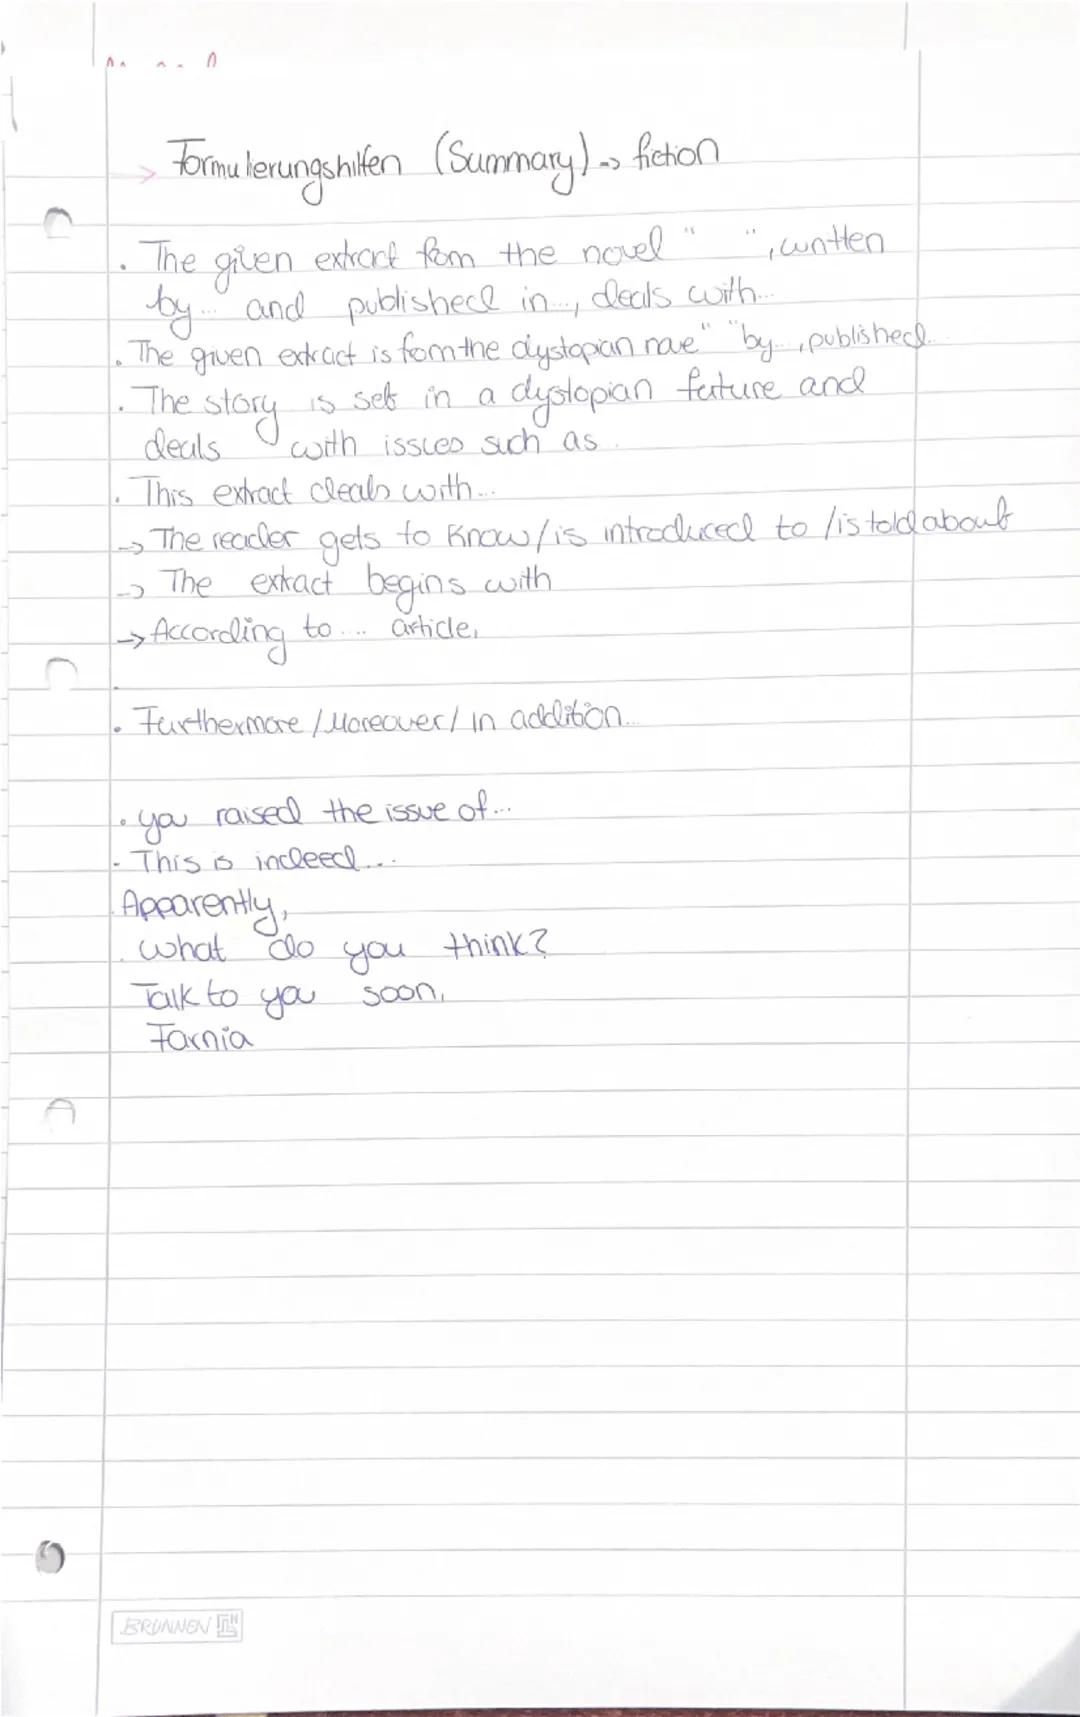 > Formulierungshilfen (Summary) -> fiction
. The given extract from the novel " ", written
by... and published in..., deals with...
. The given extract is from the dystopian nove" "by..., published...
. The story is set in a dystopian future and
deals with issues such as.
. This extract deals with...
-> The reader gets to know/is introduced to /is told about
-> The extract begins with
-> According to .... article,
. Furthermore / Moreover / in addition...
. you raised the issue of...
- This is indeed...
Apparently,
. what do you think?
Talk to you soon,
Farnia
BRUNNEN